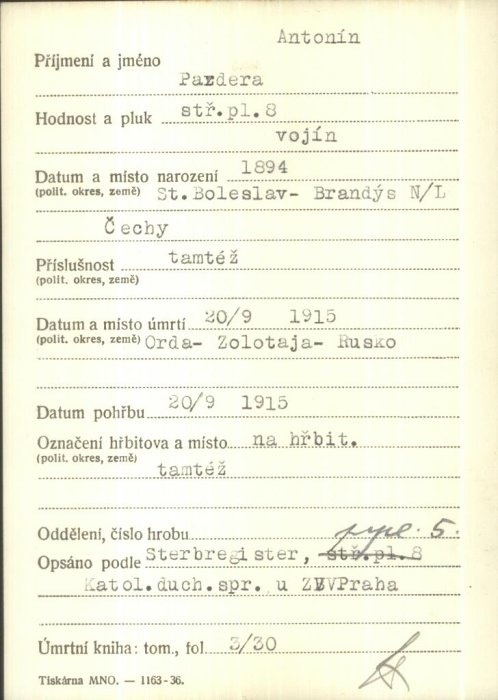 Antonín
Příjmení a jméno
Pazdera
Hodnost a pluk stř.pl.8
vojín
Datum a místo narození 1894
(polit. okres, země) St.Boleslav- Brandýs N/L
Čechy
Příslušnost tamtéž
(polit. okres, země)
Datum a místo úmrtí 20/9 1915
(polit. okres, země) Orda- Zolotaja- Rusko
Datum pohřbu 20/9 1915
Označení hřbitova a místo na hřbit.
(polit. okres, země)
tamtéž
Oddělení, číslo hrobu 5.
Opsáno podle Sterbregister, stř.pl.8
Katol.duch.spr. u ZVVPraha
Úmrtní kniha: tom., fol 3/30
Tiskárna MNO. — 1163-36.